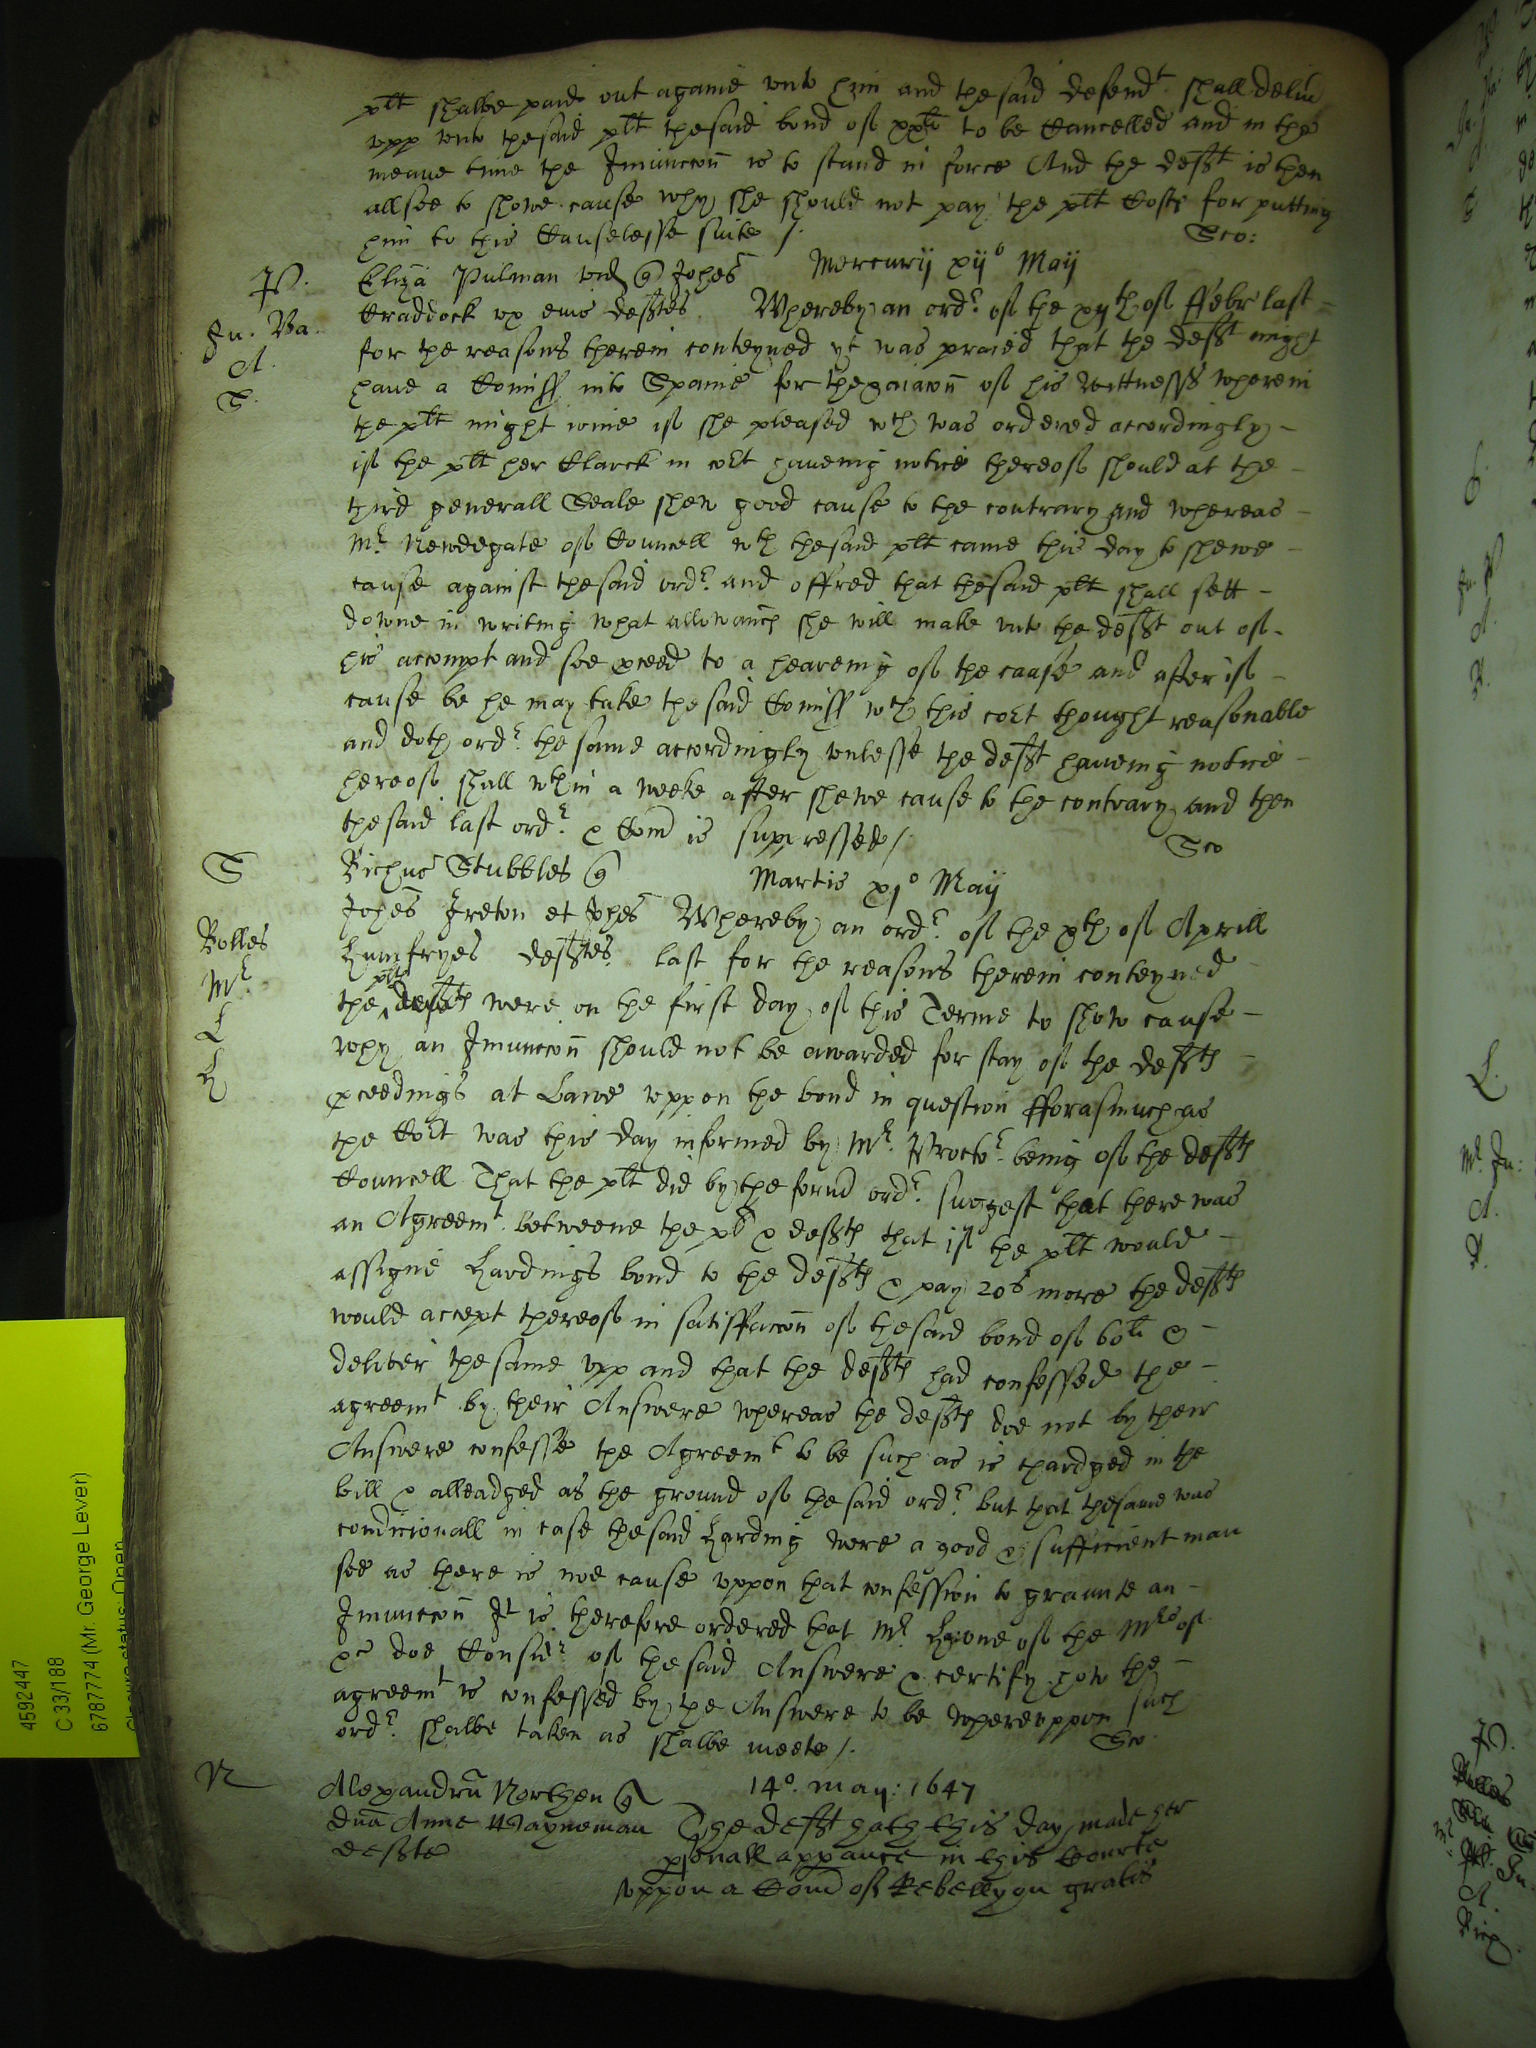 plt shalbe paid out againe unto him and the said defend^t shall deliv̄
upp unto the said plt the said bond of xx^li to be Cancelled and in the
meane time the Iniunccōn is to stand in force And the deft is then
allsoe to shewe cause why she should not pay the plt Costs for putting
him to this Causelesse suite /.
Sco:
P.
Jn. Ba.
A.
S.
Eliza Pulman vid q̄ Johes Mercurij xij^o Maij
Craddock ux eius deftes Whereby an ord^r of the xvth of ffebr last
for the reasons therein conteyned yt was praied that the deft might
have a Comiss into Spaine for the of his wittnesses wherein
the plt might ioine if she pleased w^ch was ordered accordingly
if the plt her Clarck in co^rt haueing notice thereof should at the
third generall Seale shew good cause to the contrary and whereas
M^r Newdegate of Councell w^th the said plt came this day to shewe
cause against the said ord^r and offred that the said plt shall sett
downe in writing what allowance she will make unto the deft out of
his accompt and soe pceed to a heareing of the cause and after if
cause be he may take the said Comiss w^ch this co^rt thought reasonable
and doth ord^r the same accordingly unlesse the deft haueing notice
hereof shall w^thin a weeke after shewe cause to the contrary and then
the said last ord^r & Com̄ is suppressed /.
Sco
S
Bolles
M^r
L
H
Richus Stubbles q̄ Martis xj^o Maij
Johes Ireton et Johes Whereby an ord^r of the xth of Aprill
Humfryes deftes last for the reasons therein conteyned
the ^plt defts were on the first day of this Terme to shew cause
why an Iniunccōn should not be awarded for stay of the defts
pceedings at Lawe uppon the bond in question fforasmuch as
the Co^rt was this day informed by M^r Procto^r being of the defts
Councell That the plt did by the form̄ ord^r suggest that there was
an Agreem^t betweene the plt & defts that if the plt would
assigne Hardings bond to the defts & pay 20^s more the defts
would accept thereof in satisfaccōn of the said bond of 60^li &
deliver the same upp and that the defts had confessed the
agreem^t by their Answere whereas the defts doe not by their
Answere confesse the Agreem^t to be such as is chardged in the
bill & alleadged as the ground of the said ord^r but that the same was
condicionall in case the said Harding were a good & sufficient man
soe as there is noe cause uppon that confession to graunte an
Iniunccōn It is therefore ordered that M^r one of the M^rs of
&c doe Consid^r of the said Answere & certify how the
agreem^t is confessed by the Answere to be whereuppon such
ord^r shalbe taken as shalbe meete /.
Sco
N
Alexandrū Northen q̄ 14^o. may: 1647
dnā Anne Wayneman The deft hath this day made her
defte psonall appance in this Courte
uppon a Com̄ of Rebellyon gratis
4592447
C 33/188
6787774 (Mr. George Lever)
Closure status: Open